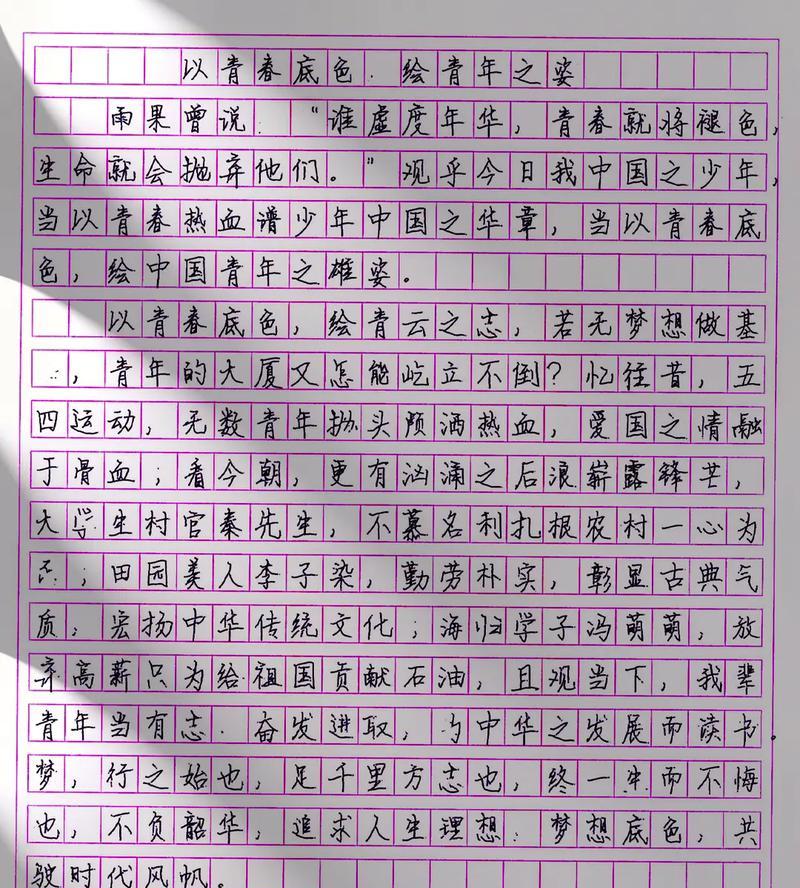 以青春底色.绘青年之姿
雨果曾说:“谁虚度年华,青春就将褪色,
生命就会抛弃他们。”观乎今日我中国之少年,
当以青春热血谱少年中国之华章,当以青春底
色,绘中国青年之雄姿。
以青春底色,绘青云之志,若无梦想做基
,青年的大厦又怎能屹立不倒?忆往昔,五
四运动,无数青年抛头颅洒热血,爱国之情融
于骨血;看今朝,更有汹涌之后浪崭露锋芒,
大学生村官秦先生,不慕名利扎根农村一心为
;田园美人李子染,勤劳朴实,彰显古典气
质,宏扬中华传统文化;海归学子冯萌萌,放
弃高薪只为给祖国贡献石油,且观当下,我辈
青年当有志.奋发进取,为中华之发展而读书。
梦,行之始也,足千里方志也,终一生而不悔
也,不负韶华,追求人生理想:梦想底色,共
驶时代风帆。